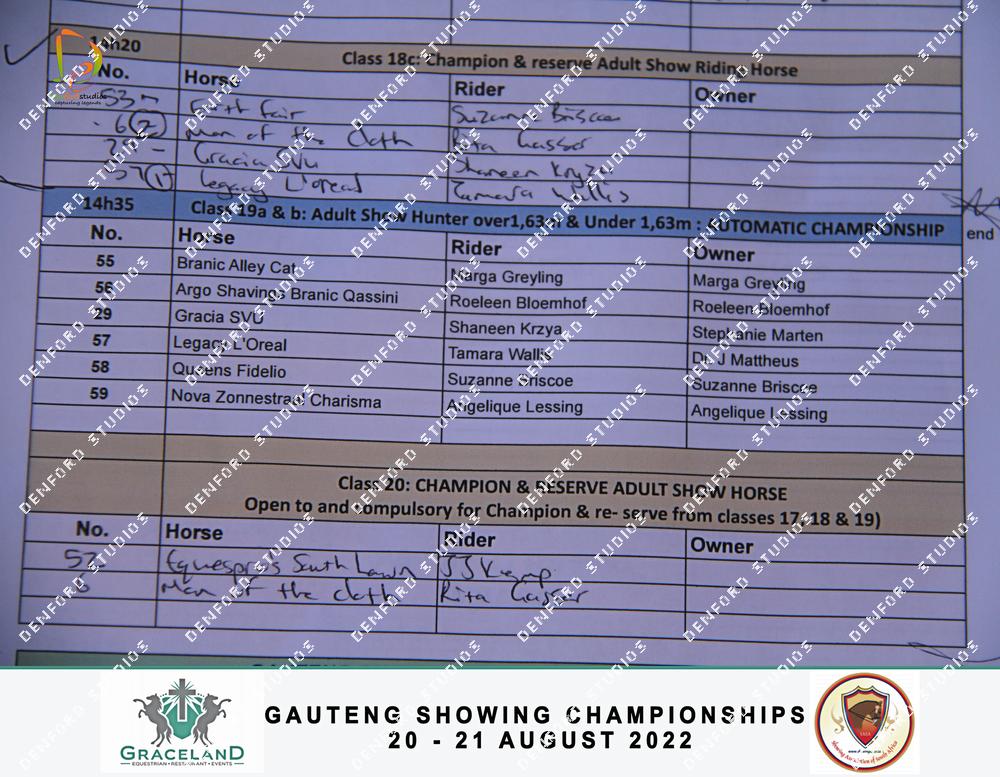 14h20 Class 18c: Champion & reserve Adult Show Riding Horse
No. Horse Rider Owner
53 Forth Fair Suzanne Briscoe
6 (2) Man of the cloth Rita Gasser
29 - Gracia SVU Shaneen Kryza
57 (1) Legacy L'oreal Tamara Wallis
14h35 Class 19a & b: Adult Show Hunter over1,63m & Under 1,63m : AUTOMATIC CHAMPIONSHIP end
No. Horse Rider Owner
55 Branic Alley Cat Marga Greyling Marga Greyling
56 Argo Shavings Branic Qassini Roeleen Bloemhof Roeleen Bloemhof
29 Gracia SVU Shaneen Krzya Stephanie Marten
57 Legacy L'Oreal Tamara Wallis Dr J Mattheus
58 Queens Fidelio Suzanne Briscoe Suzanne Briscoe
59 Nova Zonnestraal Charisma Angelique Lessing Angelique Lessing
Class 20: CHAMPION & RESERVE ADULT SHOW HORSE
Open to and compulsory for Champion & re- serve from classes 17, 18 & 19)
No. Horse Rider Owner
52 Equespro's South Lawn JJ
6 Man of the cloth Rita Gasser
GRACELAND
EQUESTRIAN • RESTAURANT • EVENTS
GAUTENG SHOWING CHAMPIONSHIPS
20 - 21 AUGUST 2022
Showing Association of South Africa
DENFORD STUDIOS